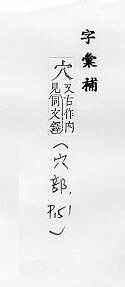 字彙補
穴 又古作內
見同文鐸
(穴部,
P.151)